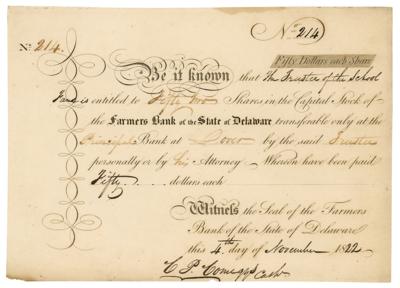 No. 214
No. 214.
Fifty Dollars each Share
Be it known that The Trustee of the School
Fund is entitled to Fifty two Shares in the Capital Stock of
the Farmers Bank of the State of Delaware transferable only at the
Principal Bank at Dover by the said Trustee
personally or by his Attorney Whereon have been paid
Fifty dollars each
Witness the Seal of the Farmers
Bank of the State of Delaware
this 4th day of November 1822
C. P. Comegys Cashr